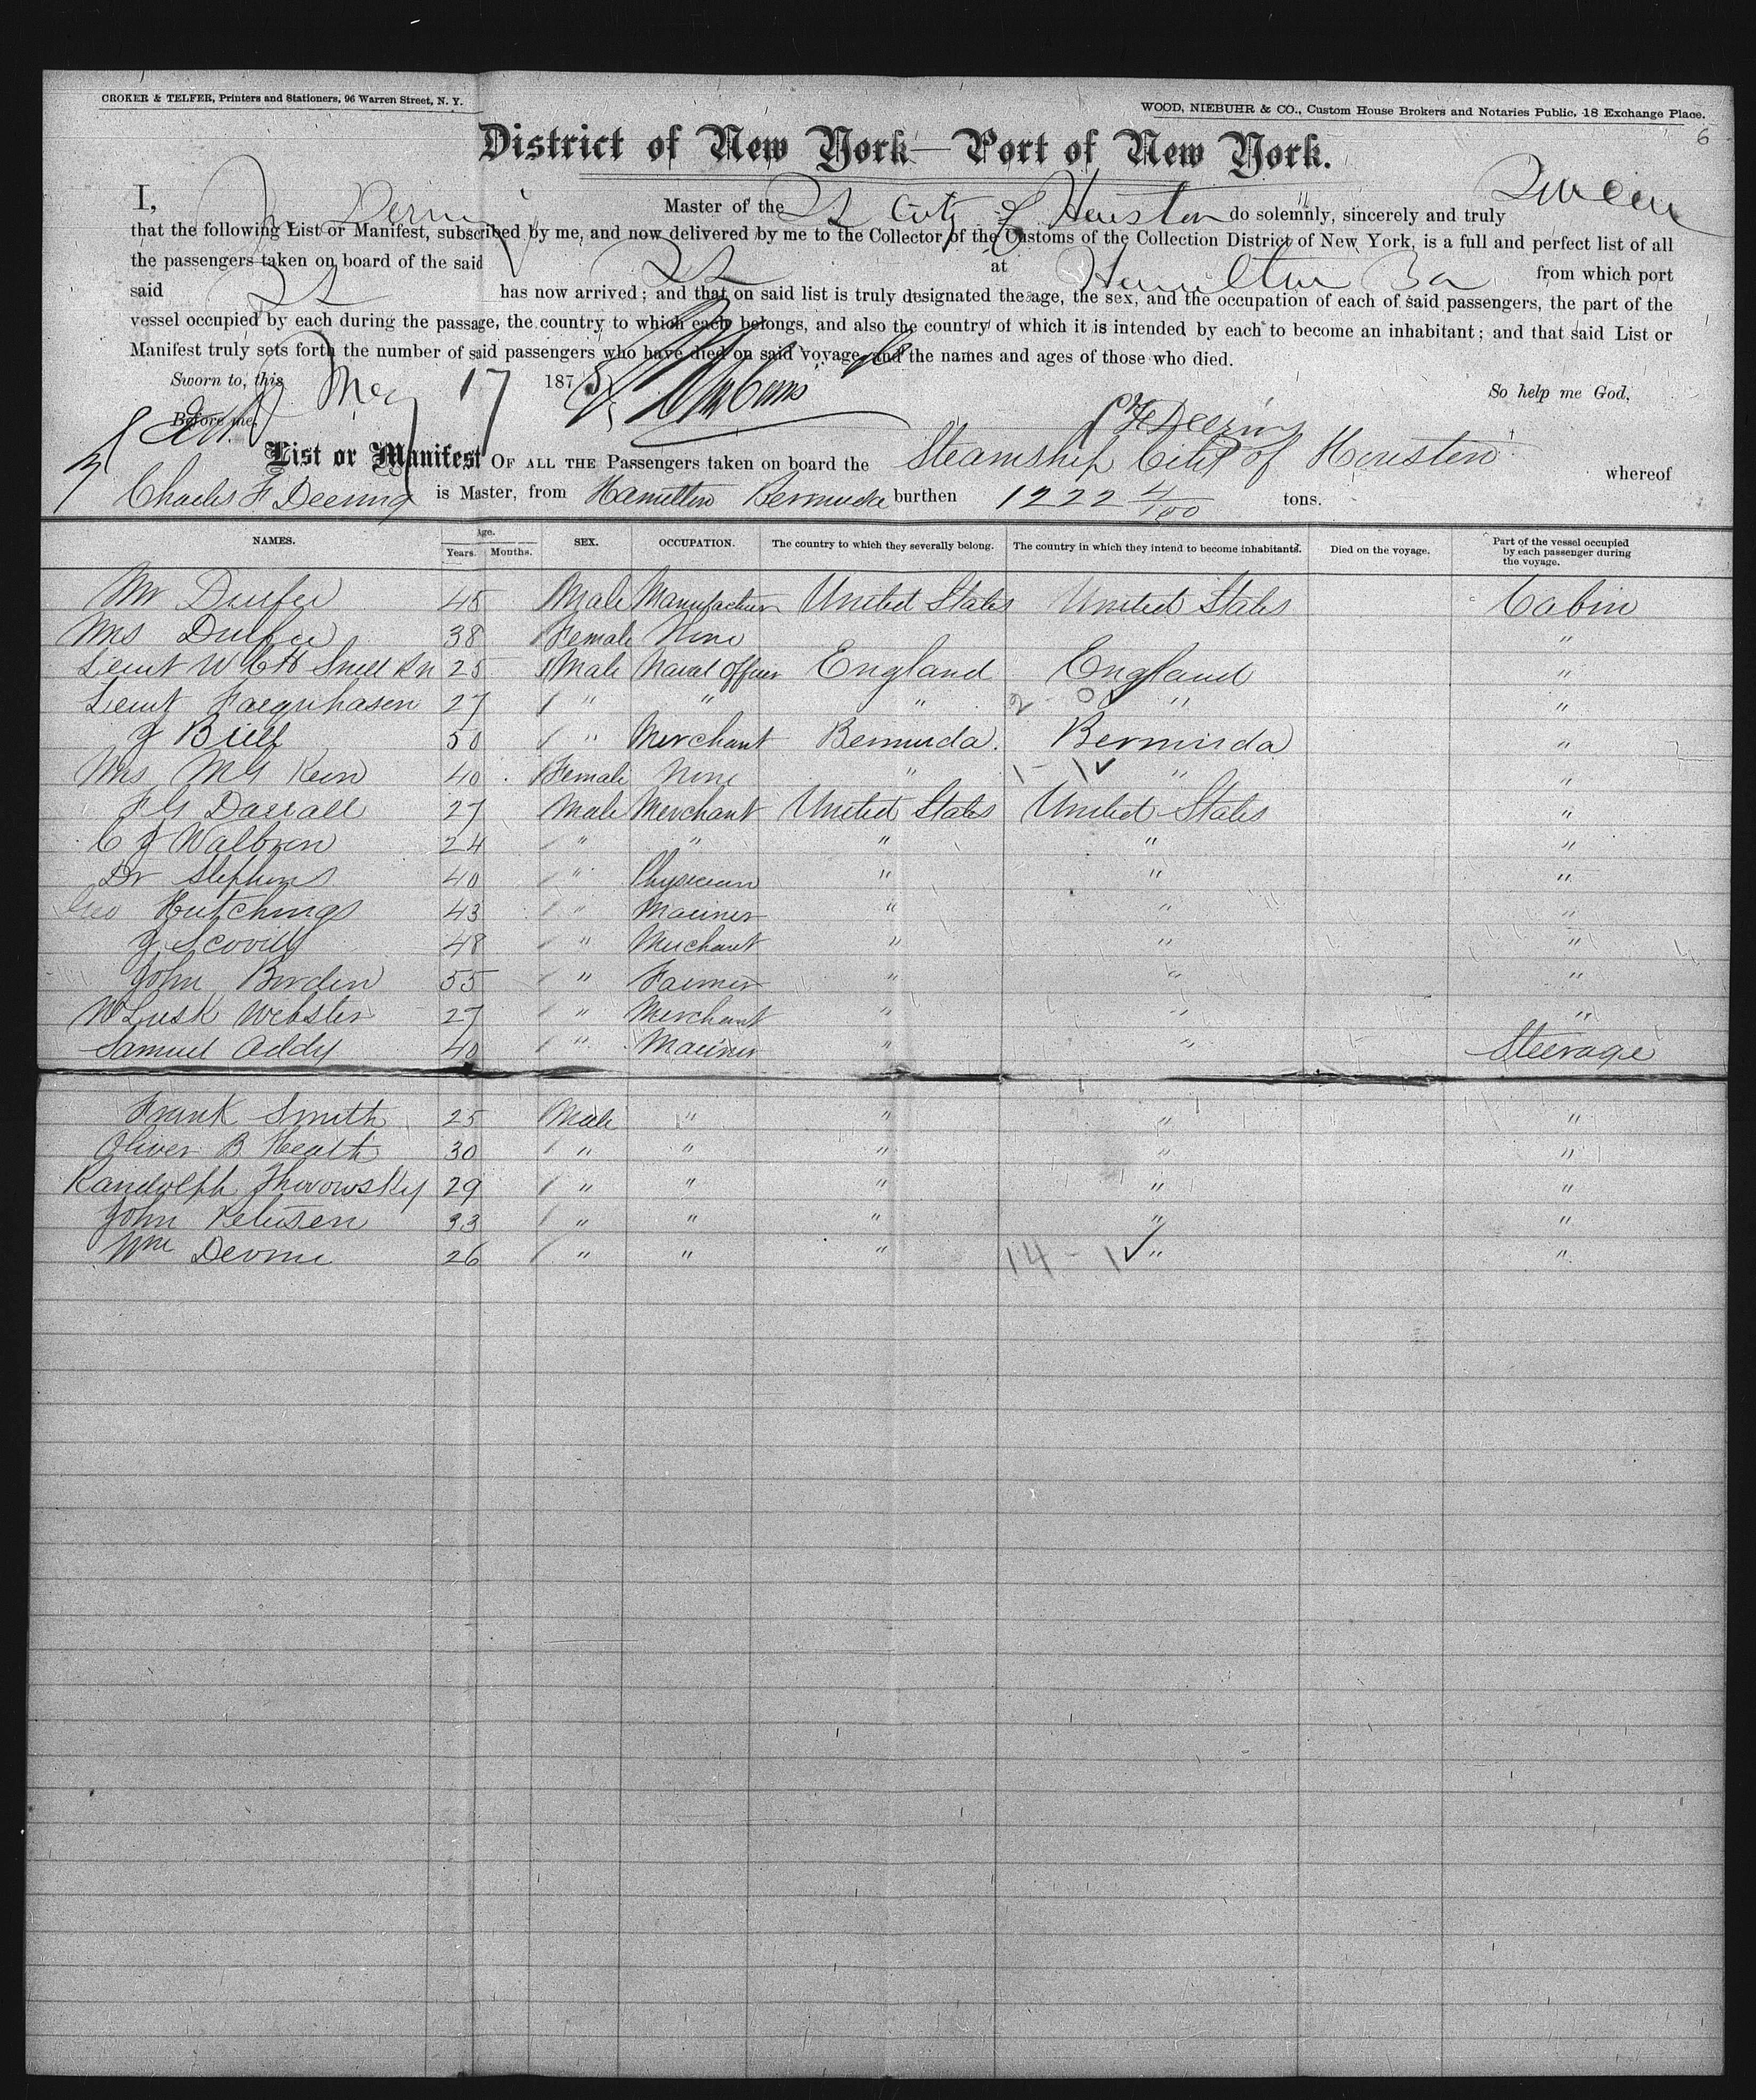 CROKER & TELFER, Printers and Stationers, 96 Warren Street, N. Y.
WOOD, NIEBUHR & CO., Custom House Brokers and Notaries Public, 18 Exchange Place.
6
District of New York—Port of New York.
I, Master of the SS City of Houston do solemnly, sincerely and truly Swear
that the following List or Manifest, subscribed by me, and now delivered by me to the Collector of the Customs of the Collection District of New York, is a full and perfect list of all
the passengers taken on board of the said SS at Hamilton Ba from which port
said SS has now arrived; and that on said list is truly designated the age, the sex, and the occupation of each of said passengers, the part of the
vessel occupied by each during the passage, the country to which each belongs, and also the country of which it is intended by each to become an inhabitant; and that said List or
Manifest truly sets forth the number of said passengers who have died on said voyage, and the names and ages of those who died.
Sworn to, this May 17 1875 So help me God,
Before me, C F Deering
List or Manifest OF ALL THE Passengers taken on board the Steamship City of Houston whereof
Charles F Deering is Master, from Hamilton Bermuda burthen 1222 4/100 tons.
NAMES. Age. Years. Months. SEX. OCCUPATION. The country to which they severally belong. The country in which they intend to become inhabitants. Died on the voyage. Part of the vessel occupied by each passenger during the voyage.
Mr Durfee 45 Male Manufacturer United States United States Cabin
Mrs Durfee 38 Female None "
Lieut W C H Snell Rn 25 Male Naval Officer England England "
Lieut Farquhasen 27 " " " 2 - 0 ✓ " "
J Bluff 50 " Merchant Bermuda. Bermuda "
Mrs M G Keen 40 Female None " 1 - 1 ✓ " "
F G Darrall 27 Male Merchant United States United States "
C J Walbron 24 " " " " "
Dr Stephens 40 " Physician " " "
Geo Hutchings 43 " Mariner " " "
J Scovill 48 " Merchant " " "
John Borden 55 " Farmer " " "
W Lusk Webster 27 " Merchant " " "
Samuel Addy 40 " Mariner " " Steerage
Frank Smith 25 Male " " " "
Oliver B Heath 30 " " " " "
Randolph Thurowsky 29 " " " " "
John Petersen 33 " " " " "
Wm Devine 26 " " " 14 - 1 ✓ " "